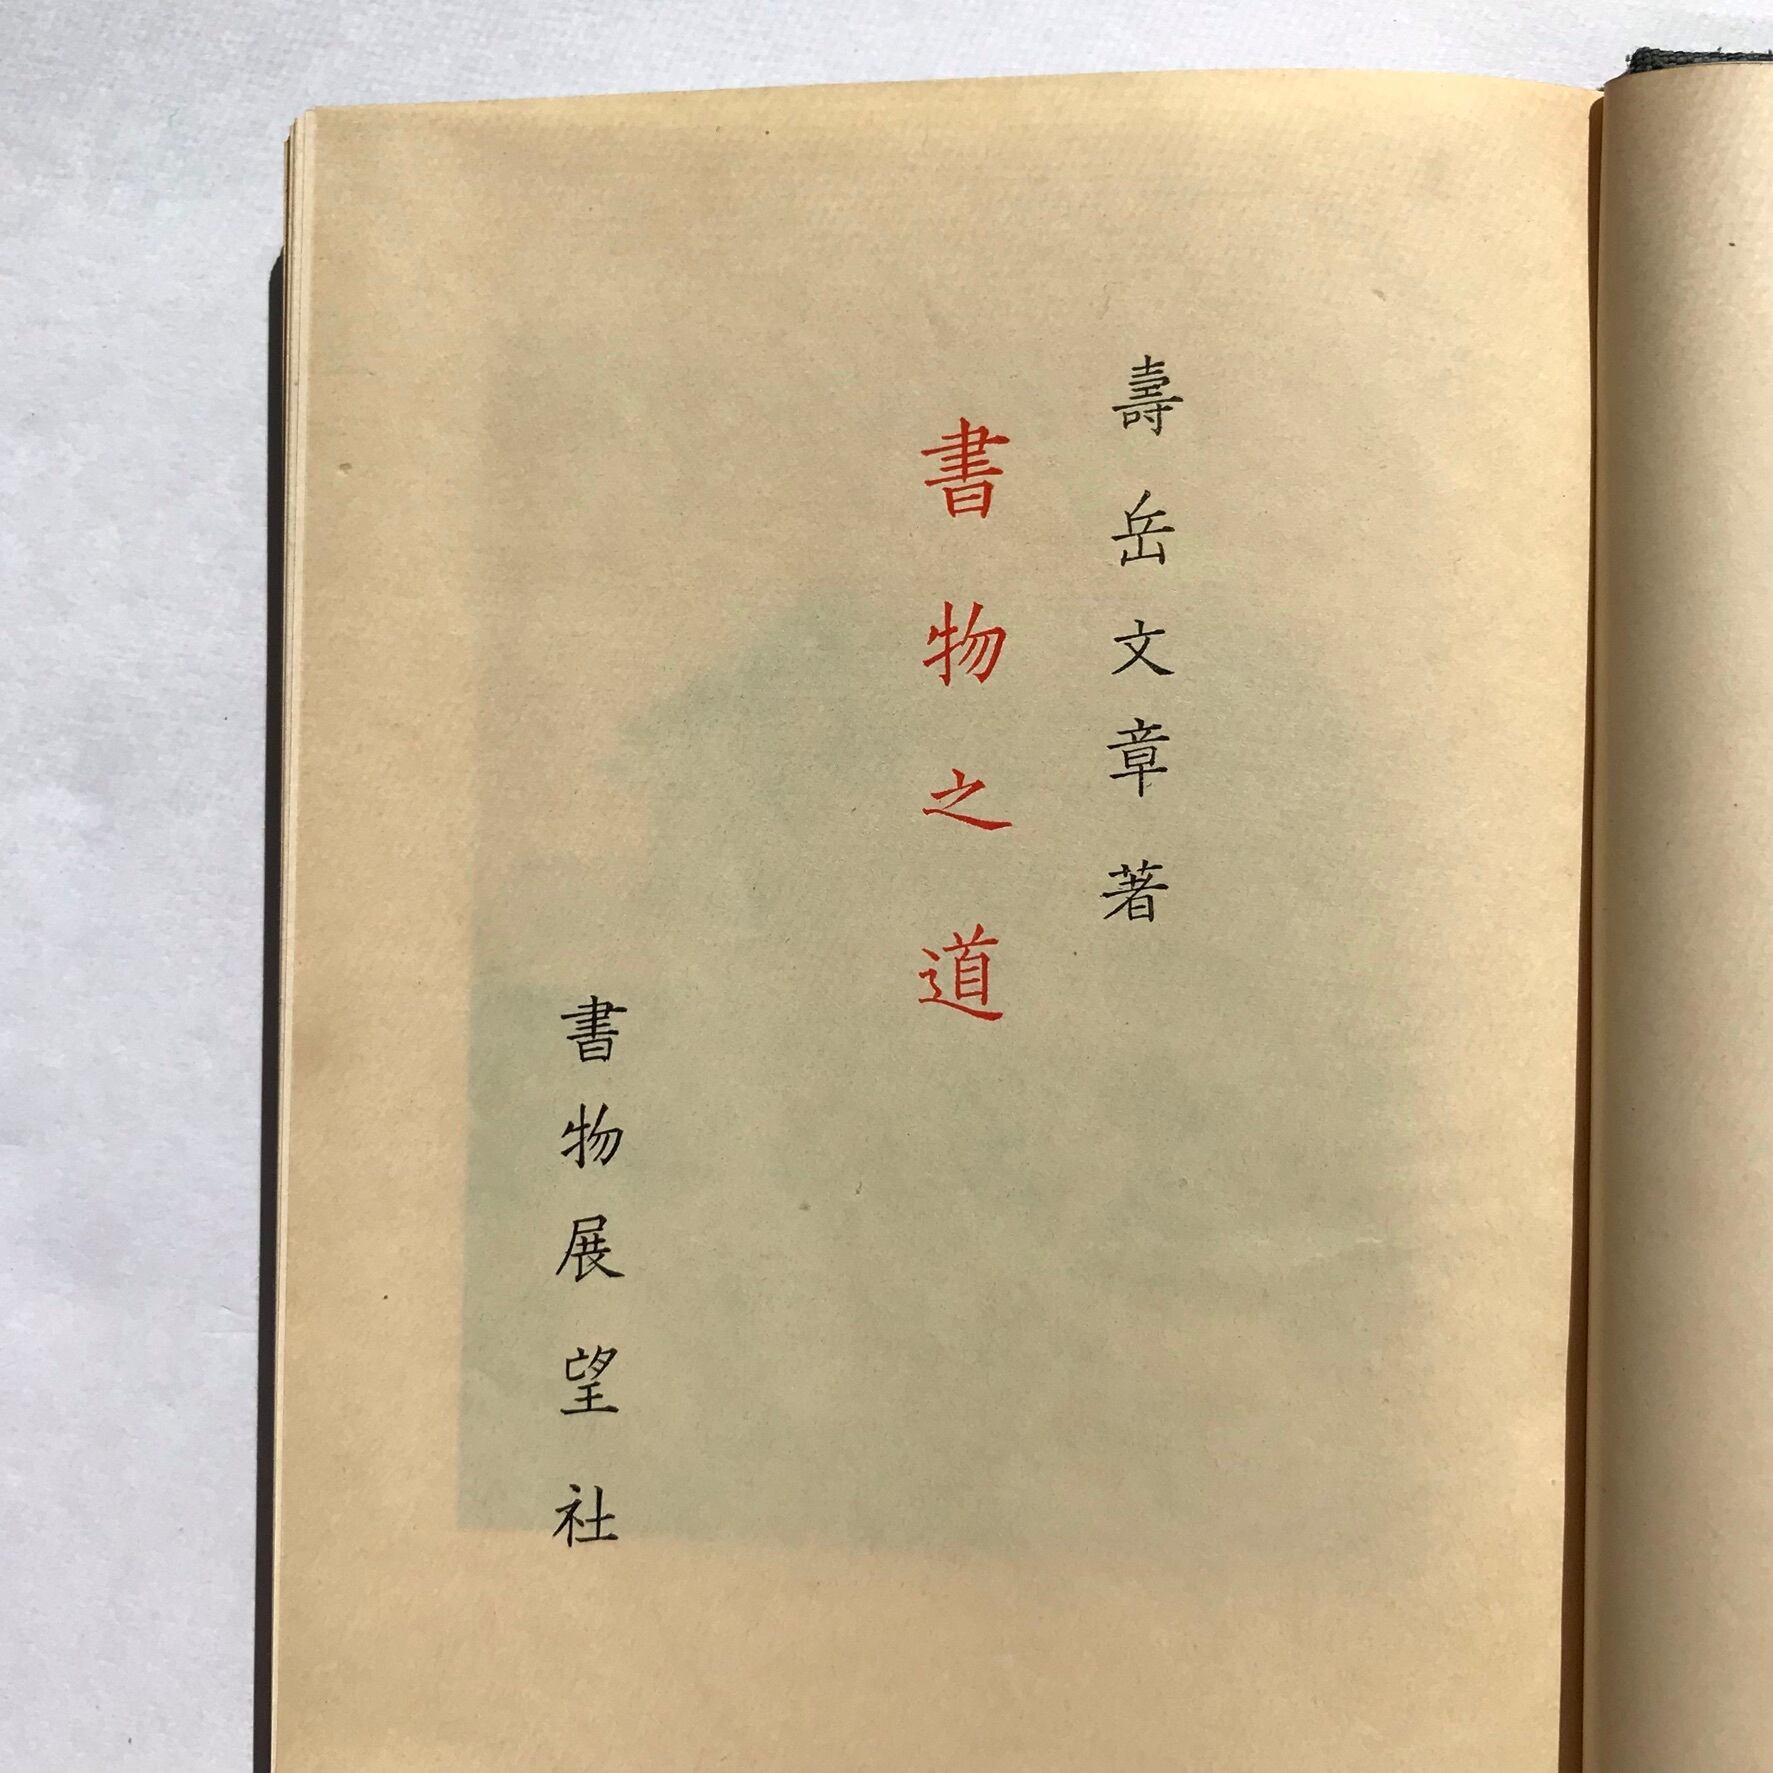 壽岳文章著
書物之道
書物展望社